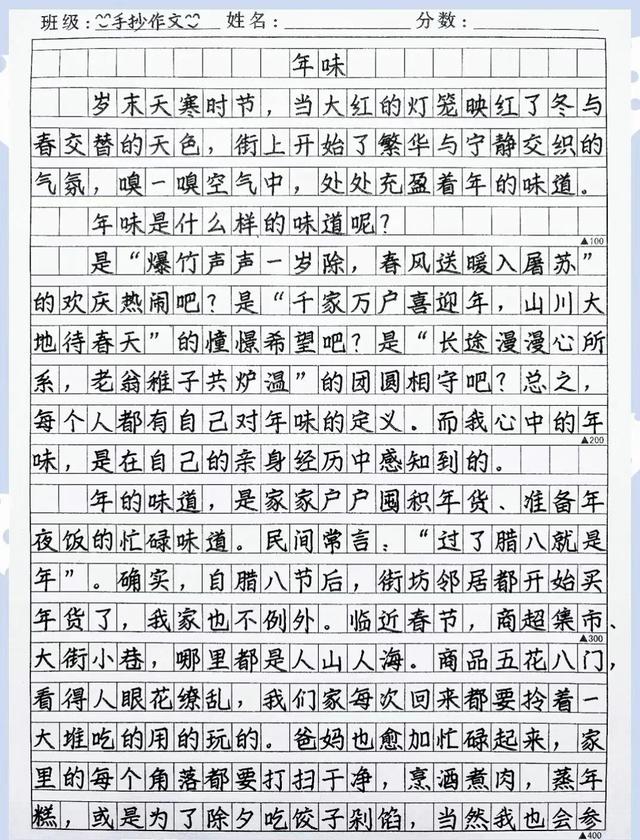 班级：手抄作文 姓名： 分数：
年味
岁末天寒时节，当大红的灯笼映红了冬与
春交替的天色，街上开始了繁华与宁静交织的
气氛，嗅一嗅空气中，处处充盈着年的味道。
年味是什么样的味道呢？
▲100
是“爆竹声声一岁除，春风送暖入屠苏”
的欢庆热闹吧？是“千家万户喜迎年，山川大
地待春天”的憧憬希望吧？是“长途漫漫心所
系，老翁稚子共炉温”的团圆相守吧？总之，
每个人都有自己对年味的定义。而我心中的年
▲200
味，是在自己的亲身经历中感知到的。
年的味道，是家家户户囤积年货、准备年
夜饭的忙碌味道。民间常言：“过了腊八就是
年”。确实，自腊八节后，街坊邻居都开始买
年货了，我家也不例外。临近春节，商超集市、
▲300
大街小巷，哪里都是人山人海。商品五花八门，
看得人眼花缭乱，我们家每次回来都要拎着一
大堆吃的用的玩的。爸妈也愈加忙碌起来，家
里的每个角落都要打扫干净，烹酒煮肉，蒸年
糕，或是为了除夕吃饺子剁馅，当然我也会参
▲400